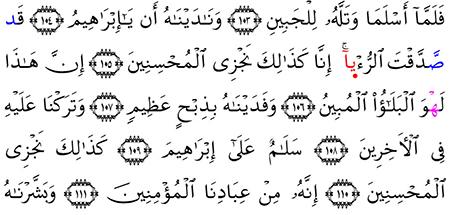 فَلَمَّآ أَسْلَمَا وَتَلَّهُۥ لِلْجَبِينِ ﴿١٠٣﴾ وَنَـٰدَيْنَـٰهُ أَن يَـٰٓإِبْرَٰهِيمُ ﴿١٠٤﴾ قَد
صَّدَّقْتَ ٱلرُّءْيَآ ۚ إِنَّا كَذَٰلِكَ نَجْزِى ٱلْمُحْسِنِينَ ﴿١٠٥﴾ إِنَّ هَـٰذَا
لَهْوَ ٱلْبَلَـٰٓؤُا۟ ٱلْمُبِينُ ﴿١٠٦﴾ وَفَدَيْنَـٰهُ بِذِبْحٍ عَظِيمٍ ﴿١٠٧﴾ وَتَرَكْنَا عَلَيْهِ
فِى ٱلْـَٔاخِرِينَ ﴿١٠٨﴾ سَلَـٰمٌ عَلَىٰٓ إِبْرَٰهِيمَ ﴿١٠٩﴾ كَذَٰلِكَ نَجْزِى
ٱلْمُحْسِنِينَ ﴿١١٠﴾ إِنَّهُۥ مِنْ عِبَادِنَا ٱلْمُؤْمِنِينَ ﴿١١١﴾ وَبَشَّرْنَـٰهُ